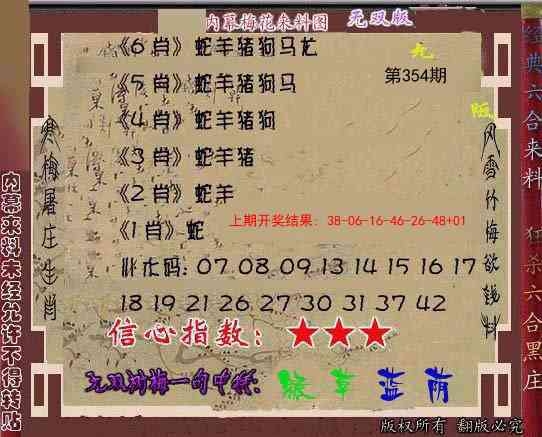 内幕梅花来料图 无双版
《6肖》蛇羊猪狗马龙
《5肖》蛇羊猪狗马
第354期
《4肖》蛇羊猪狗
《3肖》蛇羊猪
《2肖》蛇羊
上期开奖结果：38-06-16-46-26-48+01
《1肖》蛇
07 08 09 13 14 15 16 17
18 19 21 26 27 30 31 37 42
信心指数：★★★
蓝荫
版权所有 翻版必究
寒梅屠庄生肖
内幕来料未经允许不得转贴
经典六合来料 狂杀六合黑庄